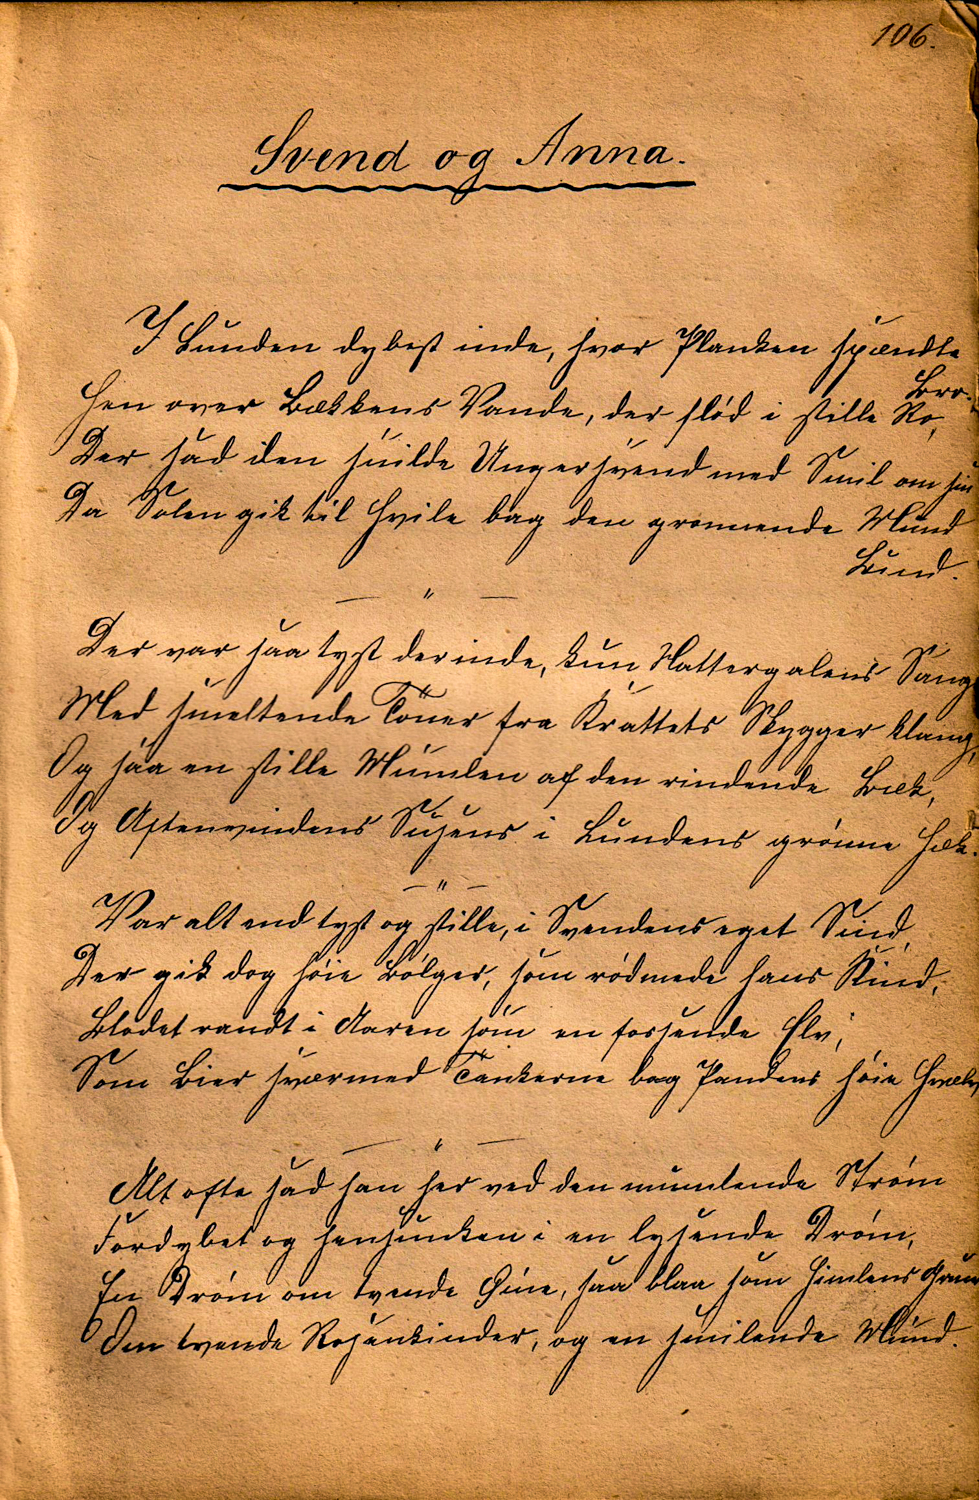 106.
Svend og Anna.
I Lunden dybest inde, hvor Planken spændte
Bro.
Hen over Bækkens Vande, der flød i stille Ro,
Der sad den snilde Ungersvend med Smil om sin
Da Solen gik til Hvile bag den grønnende Mund
Lund.
— " —
Der var saa tyst derinde, kun Nattergalens Sang
Med smeltende Töner fra Krattets Skygger klang,
Og saa en stille Mumlen af den rindende Bæk,
Og Aftenvindens Susens i Lundens grönne Hæk.
— " —
Var alt end tyst og stille, i Svendens eget Sind
Der gik dog höie Bölger, som rödmede hans Kind,
Blodet randt i Aaren som en fossende Elv,
Som Bier sværmed Tankerne bag Pandens höie Hvælv,
— " —
Alt ofte sad han her ved den mumlende Ström
Fordybet og hensunken i en lysende Dröm,
En Dröm om tvende Öine, saa blaa som Himlens Grund
Om tvende Rosenkinder, og en smilende Mund.